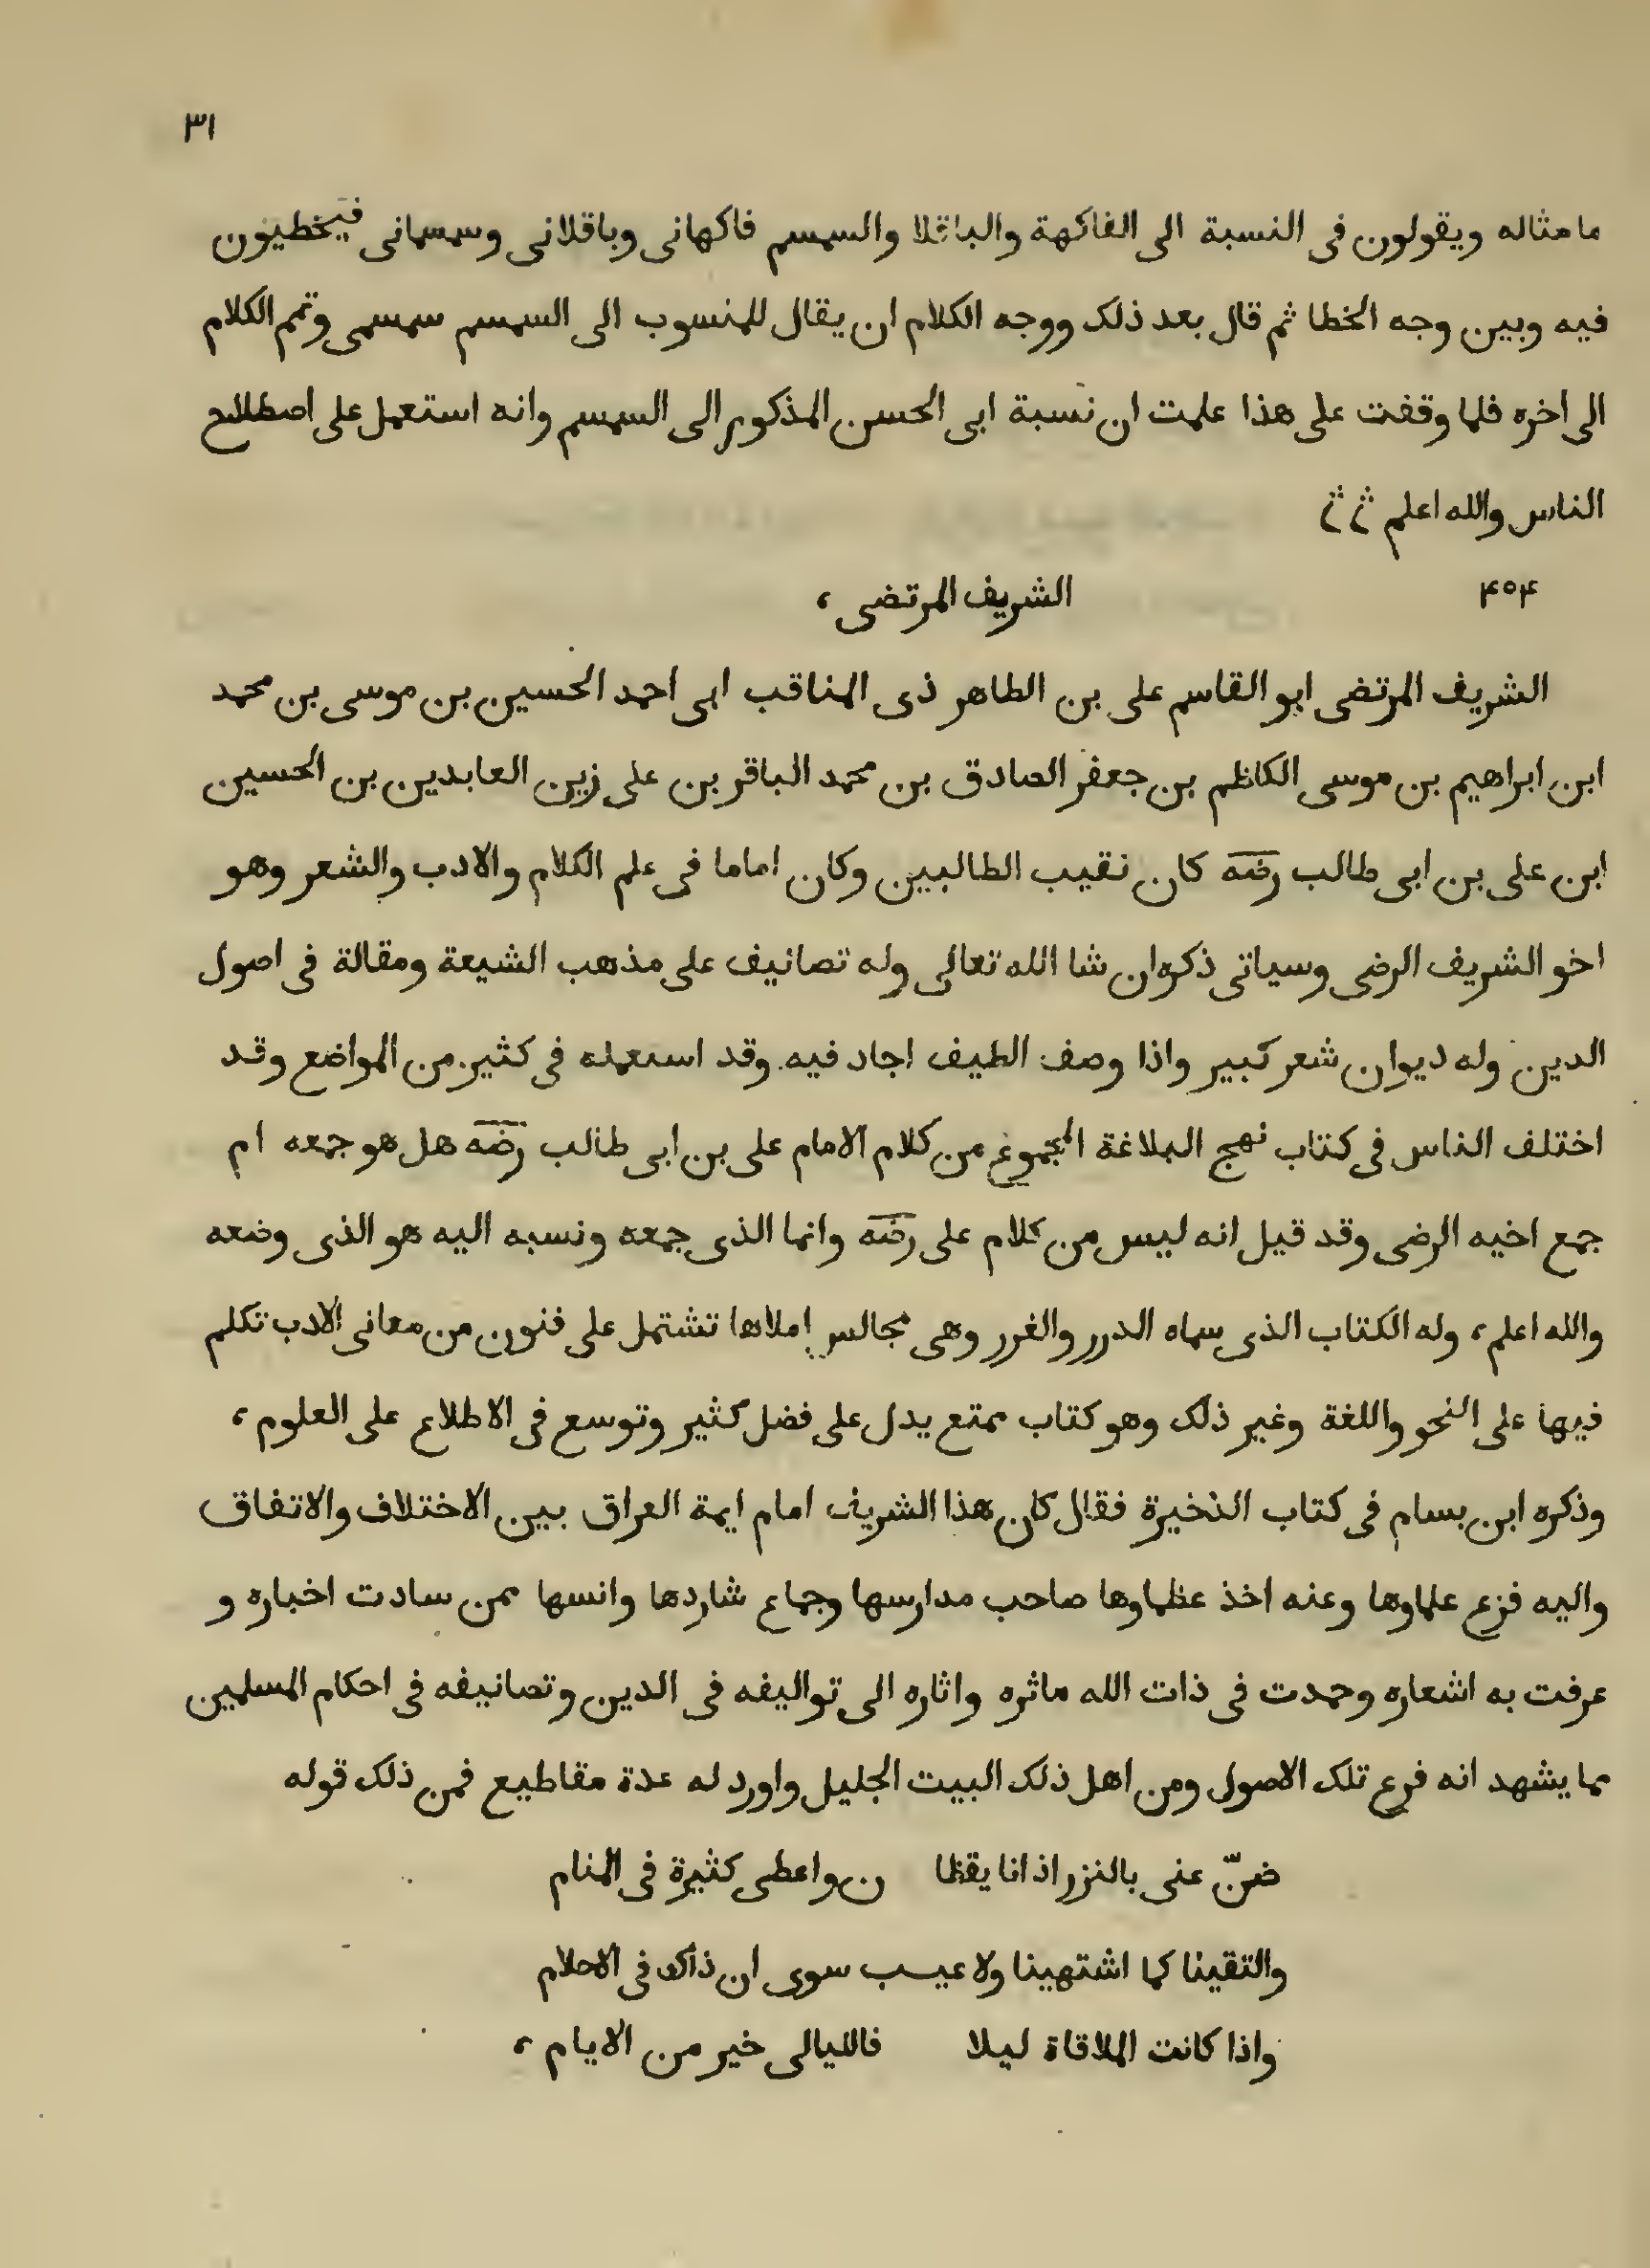 ٣١
ما مثاله ويقولون فى النسبة الى الفاكهة والباقلا والسمسم فاكهانى وباقلانى وسمسمانى فيخطيون
فيه وبين وجه الخطا ثم قال بعد ذلك ووجه الكلام ان يقال للمنسوب الى السمسم سمسمى وتمم الكلام
الى اخره فلما وقفت على هذا علمت ان نسبة ابى الحسن المذكور الى السمسم وانه استعمل على اصطلاح
الناس والله اعلم
٤٥٤ الشريف المرتضى ،
الشريف المرتضى ابو القاسم على بن الطاهر ذى المناقب ابى احمد الحسين بن موسى بن محمد
ابن ابراهيم بن موسى الكاظم بن جعفر الصادق بن محمد الباقر بن على زين العابدين بن الحسين
ابن على بن ابى طالب رضه كان نقيب الطالبيين وكان اماما فى علم الكلام والادب والشعر وهو
اخو الشريف الرضى وسياتى ذكره ان شا الله تعالى وله تصانيف على مذهب الشيعة ومقالة فى اصول
الدين وله ديوان شعر كبير واذا وصف الطيف اجاد فيه وقد استعمله فى كثير من المواضع وقد
اختلف الناس فى كتاب نهج البلاغة المجموع من كلام الامام على بن ابى طالب رضه هل هو جمعه ام
جمع اخيه الرضى وقد قيل انه ليس من كلام على رضه وانما الذى جمعه ونسبه اليه هو الذى وضعه
والله اعلم ، وله الكتاب الذى سماه الدرر والغرر وهى مجالس املاها تشتمل على فنون من معانى الادب تكلم
فيها على النحو واللغة وغير ذلك وهو كتاب ممتع يدل على فضل كثير وتوسع فى الاطلاع على العلوم ،
وذكره ابن بسام فى كتاب الذخيرة فقال كان هذا الشريف امام ايمة العراق بين الاختلاف والاتفاق
واليه فزع علماوها وعنه اخذ عظماوها صاحب مدارسها وجماع شاردها وانسها ممن سادت اخباره و
عرفت به اشعاره وحمدت فى ذات الله ماثره واثاره الى تواليفه فى الدين وتصانيفه فى احكام المسلمين
مما يشهد انه فرع تلك الاصول ومن اهل ذلك البيت الجليل واورد له عدة مقاطيع فمن ذلك قوله
ضنّ عنى بالنزر اذ انا يقظا ن واعطى كثيرة فى المنام
والتقينا كما اشتهينا ولا عيب سوى ان ذاك فى الاحلام
واذا كانت الملاقاة ليلا فالليالى خير من الايام ،